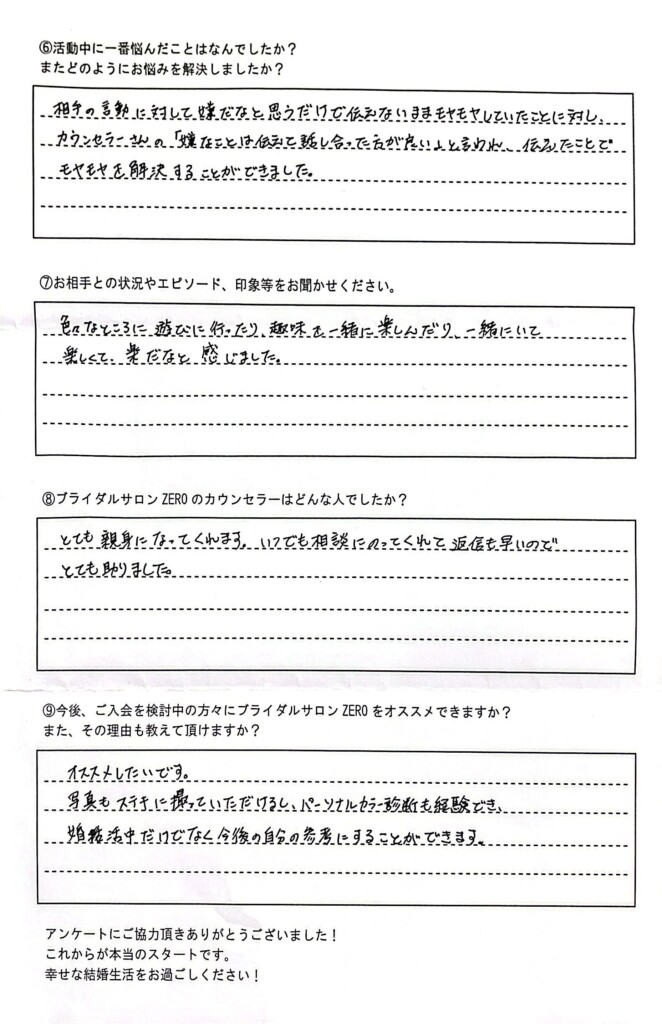 ⑥活動中に一番悩んだことはなんでしたか？
またどのようにお悩みを解決しましたか？
相手の言動に対して嫌だなと思うだけで伝えないままモヤモヤしていたことに対し、
カウンセラーさんの「嫌なことは伝えて話し合った方が良い」と言われ、伝えたことで
モヤモヤを解決することができました。
⑦お相手との状況やエピソード、印象等をお聞かせください。
色々なところに遊びに行ったり、趣味を一緒に楽しんだり、一緒にいて
楽しくて、楽だなと感じました。
⑧ブライダルサロンZEROのカウンセラーはどんな人でしたか？
とても親身になってくれます。いつでも相談にのってくれて返信も早いので
とても助りました。
⑨今後、ご入会を検討中の方々にブライダルサロンZEROをオススメできますか？
また、その理由も教えて頂けますか？
オススメしたいです。
写真もステキに撮っていただけるし、パーソナルカラー診断も経験でき、
婚活活中だけでなく今後の自分の参考にすることができます。
アンケートにご協力頂きありがとうございました！
これからが本当のスタートです。
幸せな結婚生活をお過ごしください！